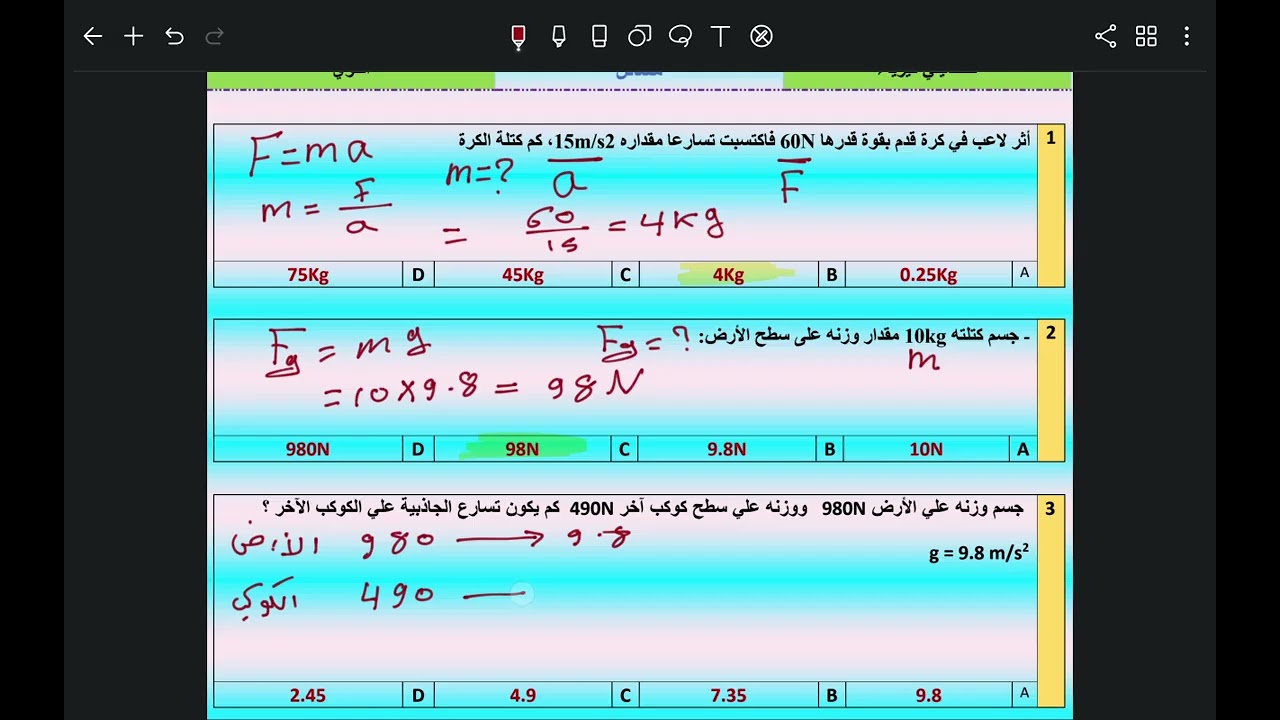 1
أثر لاعب في كرة قدم بقوة قدرها 60N فاكتسبت تسارعا مقداره 15m/s2، كم كتلة الكرة
F = ma
m = ? a F
m = F/a
= 60/15 = 4 Kg
A 0.25Kg B 4Kg C 45Kg D 75Kg
2
- جسم كتلته 10kg مقدار وزنه على سطح الأرض:
m
Fg = ?
Fg = mg
= 10 × 9.8 = 98 N
A 10N B 9.8N C 98N D 980N
3
جسم وزنه علي الأرض 980N ووزنه علي سطح كوكب آخر 490N كم يكون تسارع الجاذبية علي الكوكب الآخر ؟
g = 9.8 m/s²
الأرض 980 → 9.8
الكوكب 490 —
A 9.8 B 7.35 C 4.9 D 2.45